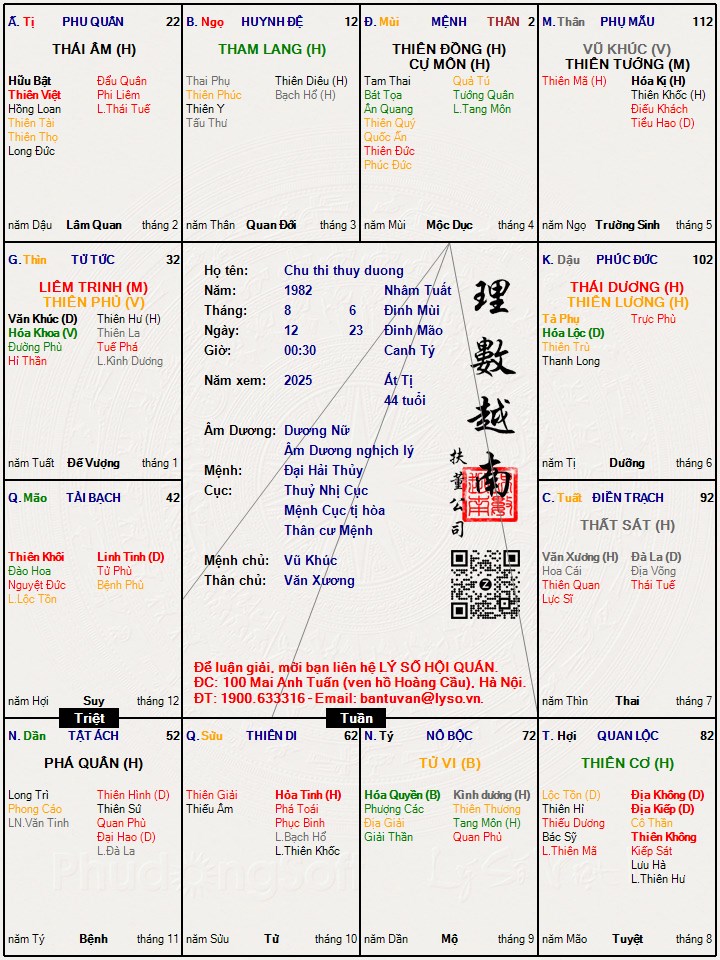 Ấ. Tị PHU QUÂN 22
THÁI ÂM (H)
Hữu Bật
Thiên Việt
Hồng Loan
Thiên Tài
Thiên Thọ
Long Đức
Đẩu Quân
Phi Liêm
L.Thái Tuế
năm Dậu Lâm Quan tháng 2
B. Ngọ HUYNH ĐỆ 12
THAM LANG (H)
Thai Phụ
Thiên Phúc
Thiên Y
Tấu Thư
Thiên Diêu (H)
Bạch Hổ (H)
năm Thân Quan Đới tháng 3
Đ. Mùi MỆNH THÂN 2
THIÊN ĐỒNG (H)
CỰ MÔN (H)
Tam Thai
Bát Tọa
Ân Quang
Thiên Quý
Quốc Ấn
Thiên Đức
Phúc Đức
Quả Tú
Tướng Quân
L.Tang Môn
năm Mùi Mộc Dục tháng 4
M. Thân PHỤ MẪU 112
VŨ KHÚC (V)
THIÊN TƯỚNG (M)
Thiên Mã (H)
Hóa Kị (H)
Thiên Khốc (H)
Điếu Khách
Tiểu Hao (D)
năm Ngọ Trường Sinh tháng 5
G. Thìn TỬ TỨC 32
LIÊM TRINH (M)
THIÊN PHỦ (V)
Văn Khúc (D)
Hóa Khoa (V)
Đường Phù
Hỉ Thần
Thiên Hư (H)
Thiên La
Tuế Phá
L.Kình Dương
năm Tuất Đế Vượng tháng 1
Họ tên: Chu thi thuy duong
Năm: 1982 Nhâm Tuất
Tháng: 8 6 Đinh Mùi
Ngày: 12 23 Đinh Mão
Giờ: 00:30 Canh Tý
Năm xem: 2025 Ất Tị
44 tuổi
Âm Dương: Dương Nữ
Âm Dương nghịch lý
Mệnh: Đại Hải Thủy
Cục: Thuỷ Nhị Cục
Mệnh Cục tị hòa
Thân cư Mệnh
Mệnh chủ: Vũ Khúc
Thân chủ: Văn Xương
理數越南
扶董公司
Để luận giải, mời bạn liên hệ LÝ SỐ HỘI QUÁN.
ĐC: 100 Mai Anh Tuấn (ven hồ Hoàng Cầu), Hà Nội.
ĐT: 1900.633316 - Email: bantuvan@lyso.vn.
K. Dậu PHÚC ĐỨC 102
THÁI DƯƠNG (H)
THIÊN LƯƠNG (H)
Tả Phụ
Hóa Lộc (D)
Thiên Trù
Thanh Long
Trực Phù
năm Tị Dưỡng tháng 6
Q. Mão TÀI BẠCH 42
Thiên Khôi
Đào Hoa
Nguyệt Đức
L.Lộc Tồn
Linh Tinh (D)
Tử Phù
Bệnh Phù
năm Hợi Suy tháng 12
C. Tuất ĐIỀN TRẠCH 92
THẤT SÁT (H)
Văn Xương (H)
Hoa Cái
Thiên Quan
Lực Sĩ
Đà La (D)
Địa Võng
Thái Tuế
năm Thìn Thai tháng 7
Triệt
Tuần
N. Dần TẬT ÁCH 52
PHÁ QUÂN (H)
Long Trì
Phong Cáo
LN.Văn Tinh
Thiên Hình (D)
Thiên Sứ
Quan Phù
Đại Hao (D)
L.Đà La
năm Tý Bệnh tháng 11
Q. Sửu THIÊN DI 62
Thiên Giải
Thiếu Âm
Hỏa Tinh (H)
Phá Toái
Phục Binh
L.Bạch Hổ
L.Thiên Khốc
năm Sửu Tử tháng 10
N. Tý NÔ BỘC 72
TỬ VI (B)
Hóa Quyền (B)
Phượng Các
Địa Giải
Giải Thần
Kình dương (H)
Thiên Thương
Tang Môn (H)
Quan Phủ
năm Dần Mộ tháng 9
T. Hợi QUAN LỘC 82
THIÊN CƠ (H)
Lộc Tồn (D)
Thiên Hỉ
Thiếu Dương
Bác Sỹ
L.Thiên Mã
Địa Không (D)
Địa Kiếp (D)
Cô Thần
Thiên Không
Kiếp Sát
Lưu Hà
L.Thiên Hư
năm Mão Tuyệt tháng 8